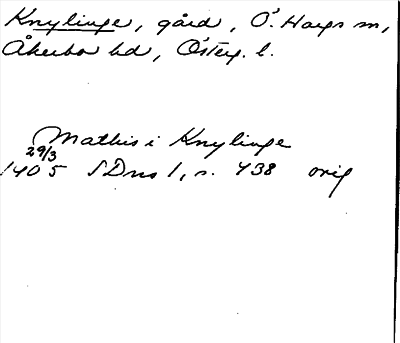 Knylinge, gård, Ö. Hargs sn,
Åkerbo hd, Österg. l.
Mathis i Knylinge
29/3
1405 SDns 1, s. 438 orig